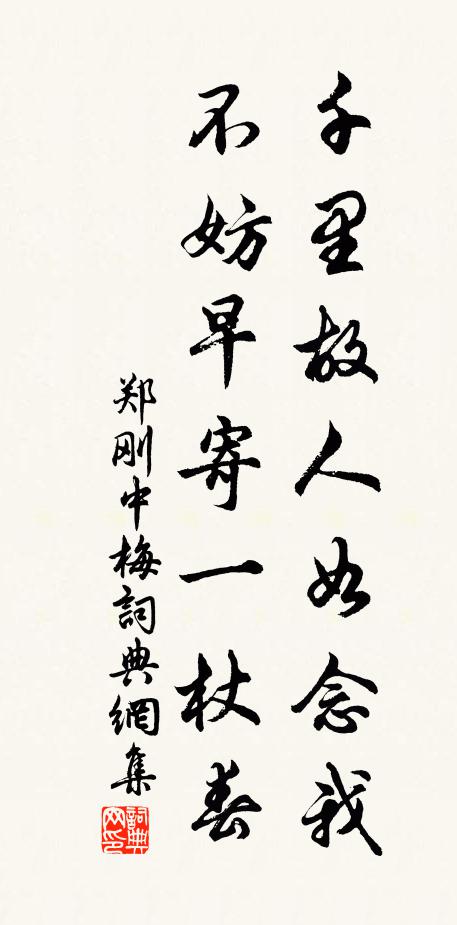 千里故人如念我
不妨早寄一杖春
郑刚中梅詞典網集
詞典網印